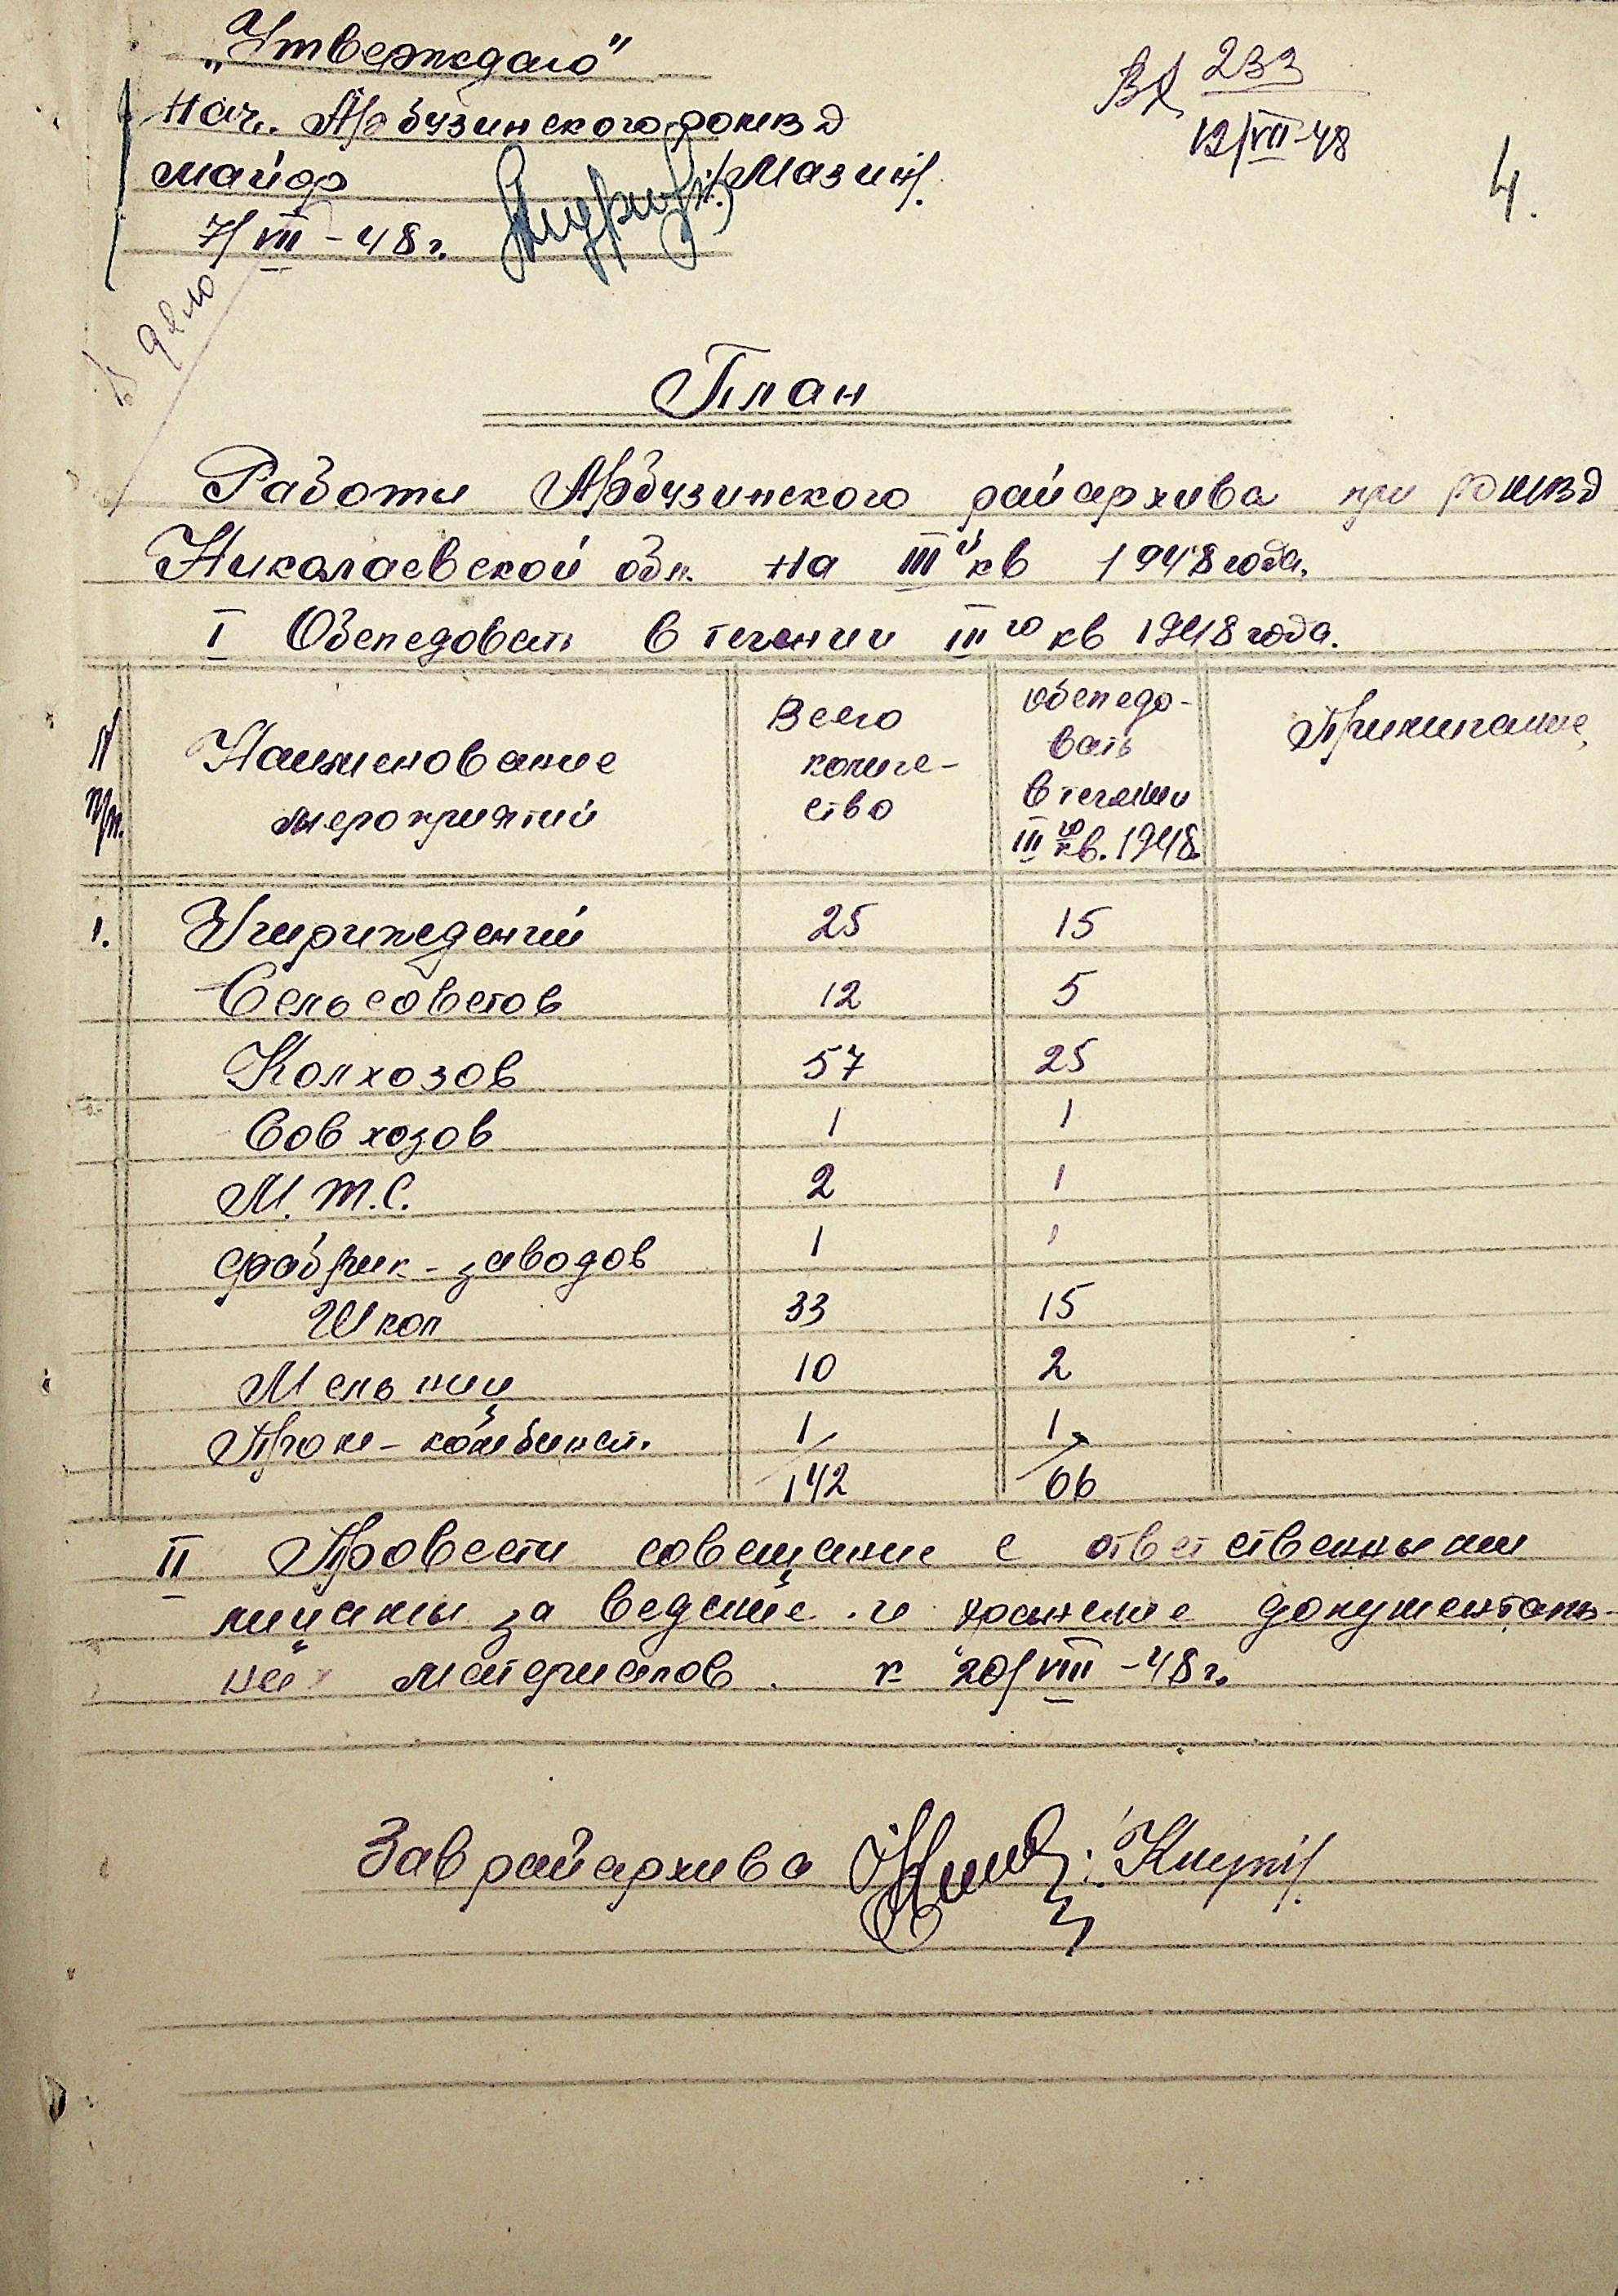 „Утверждаю"
Вх 233
Нач. Арбузинского РОМВД
12/VII-48
майор /Мазин/.
4.
7/VII-48 г.
В дело
План
Работы Арбузинского райархива при РОМВД
Николаевской обл. на IIIй кв 1948 года.
I Обследовать в течении IIIго кв 1948 года.
N п/п.
Наименование мероприятий
Всего количе-ство
Обследо-вать в течении IIIго кв. 1948.
Примечание
1. Учириждений 25 15
Сельсоветов 12 5
Колхозов 57 25
Совхозов 1 1
М.Т.С. 2 1
Фабрик-заводов 1 1
Школ 33 15
Мельниц 10 2
Пром-комбинат. 1 1
142 66
II Провести совещание с ответственными
лицамы за ведение и хранение документаль-
ных материалов. к 20/VIII-48 г.
Зав райархива